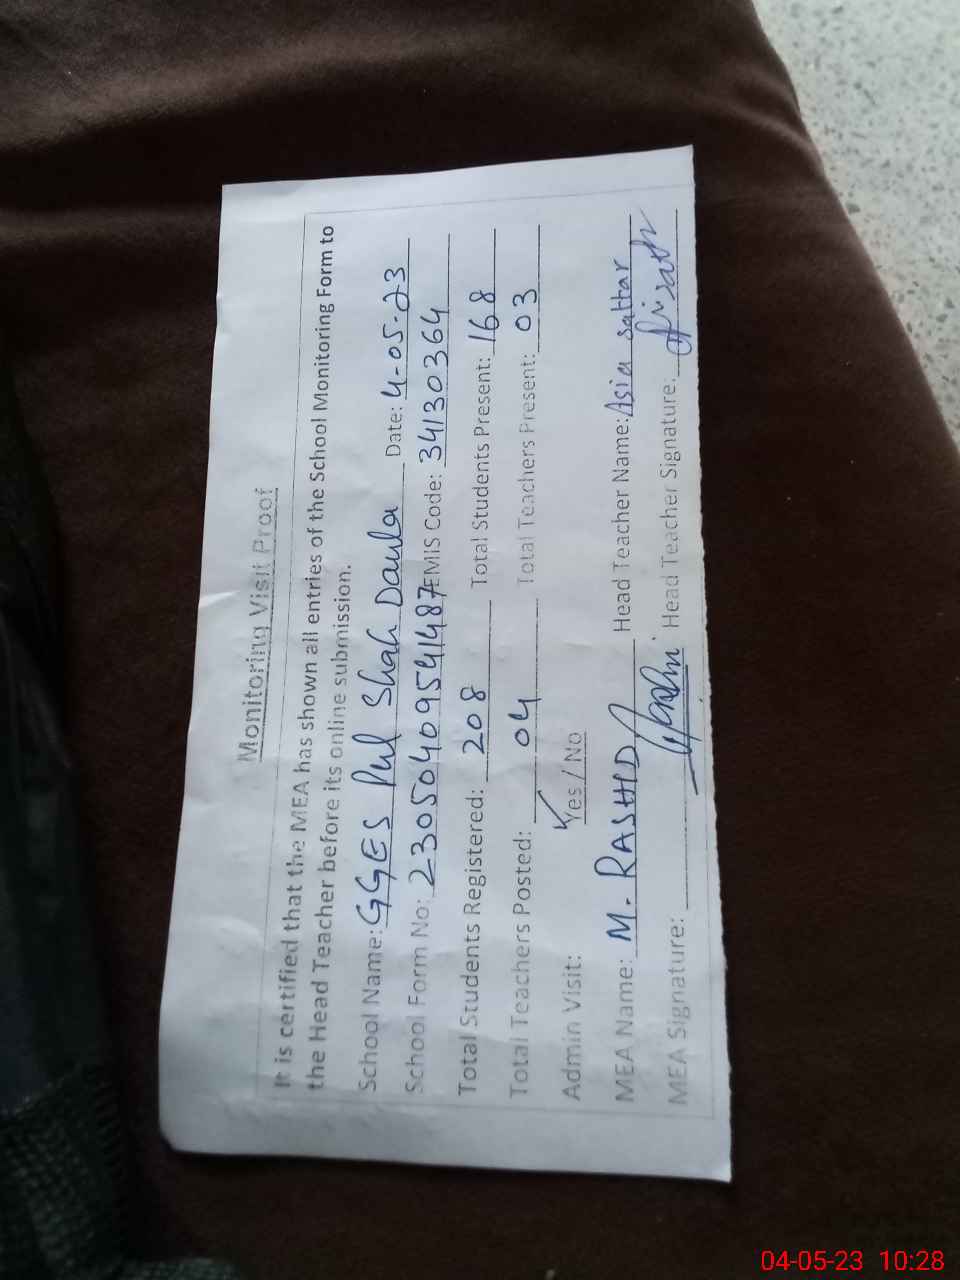 Monitoring Visit Proof
It is certified that the MEA has shown all entries of the School Monitoring Form to
the Head Teacher before its online submission.
School Name: GGES Pul Shah Daula Date: 4-05-23
School Form No: 23050409541487 EMIS Code: 34130364
Total Students Registered: 208 Total Students Present: 168
Total Teachers Posted: 04 Total Teachers Present: 03
Admin Visit: Yes / No
MEA Name: M. RASHID Head Teacher Name: Asia sattar
MEA Signature: Head Teacher Signature:
04-05-23 10:28